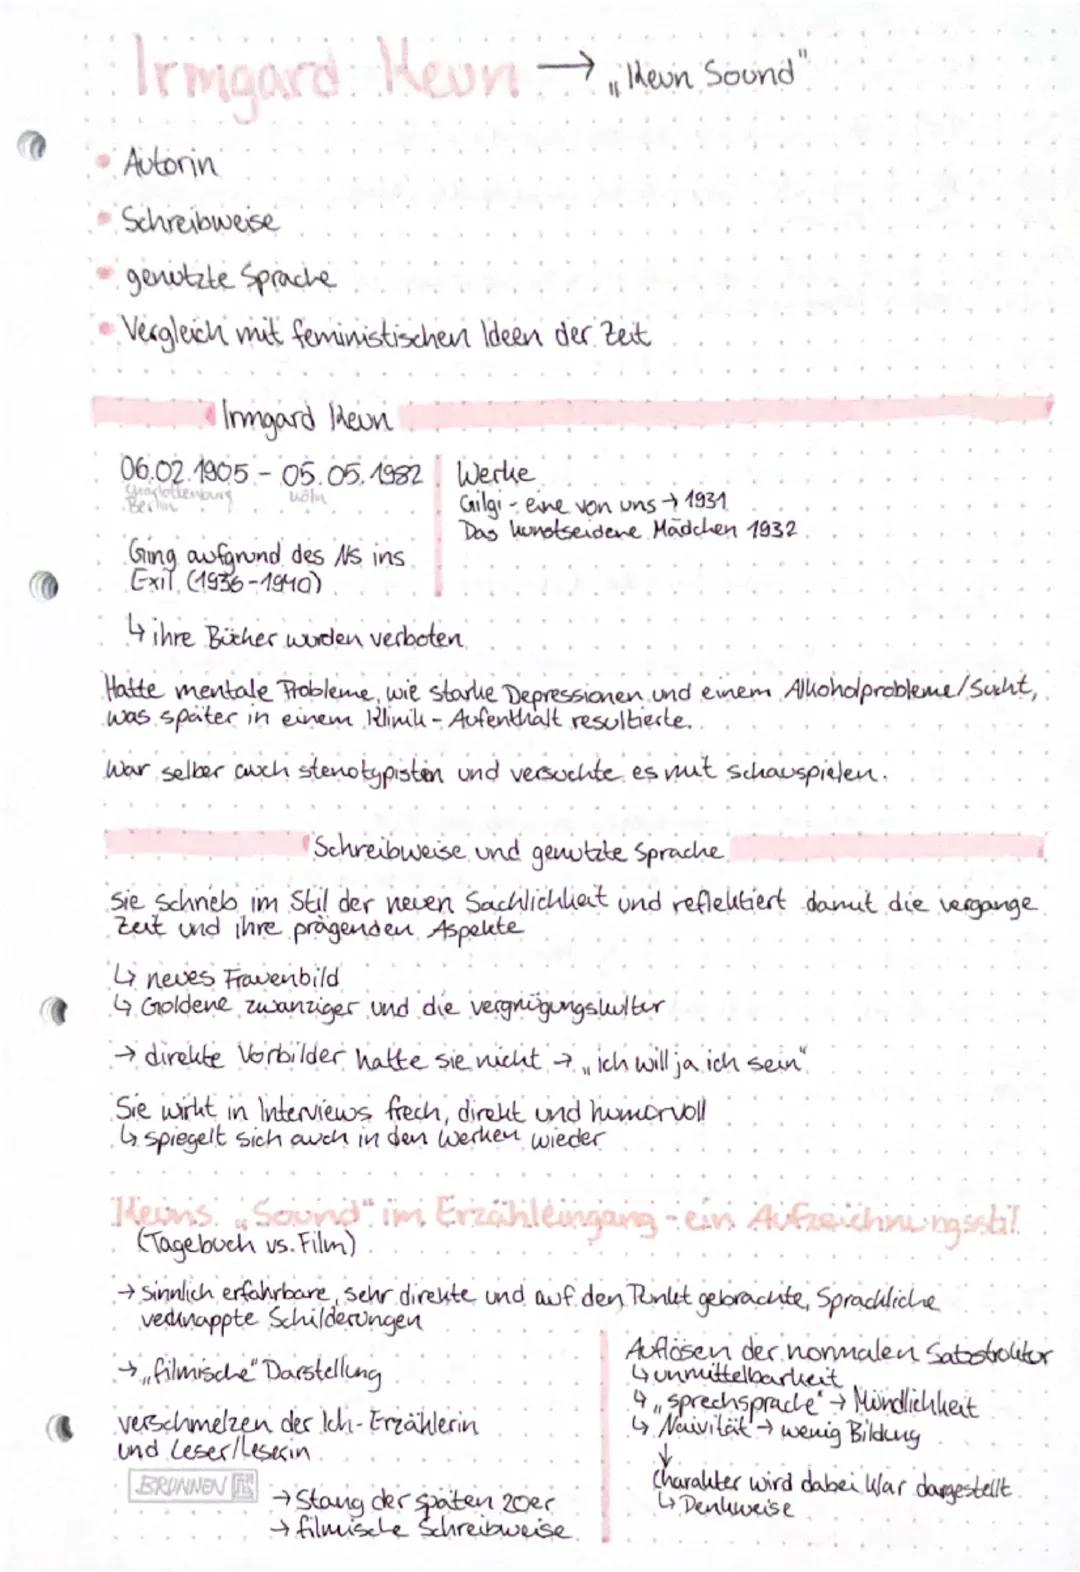 Irmgard Keun → „Keun Sound"
• Autorin
• Schreibweise
• genutzte Sprache
• Vergleich mit feministischen Ideen der Zeit
Irmgard Keun
06.02.1905 - 05.05.1982
Charlottenburg Köln
Berlin
Ging aufgrund des NS ins
Exil (1936-1940)
↳ ihre Bücher wurden verboten
Werke
Gilgi - eine von uns → 1931
Das kunstseidene Mädchen 1932
Hatte mentale Probleme, wie starke Depressionen und einem Alkoholprobleme/Sucht,
was später in einem Klinik-Aufenthalt resultierte.
War selber auch stenotypisten und versuchte es mit schauspielen.
Schreibweise und genutzte Sprache
Sie schrieb im Stil der neuen Sachlichkeit und reflektiert damit die vergange
Zeit und ihre prägenden Aspekte
↳ neues Frauenbild
↳ Goldene zwanziger und die vergnügungskultur
→ direkte Vorbilder hatte sie nicht → „ich will ja ich sein"
Sie wirkt in Interviews frech, direkt und humorvoll
↳ spiegelt sich auch in den Werken wieder
Keuns „Sound" im Erzähleingang - ein Aufzeichnungsstil
(Tagebuch vs. Film)
→ sinnlich erfahrbare, sehr direkte und auf den Punkt gebrachte, Sprachliche
verknappte Schilderungen
→ „filmische" Darstellung
verschmelzen der Ich-Erzählerin
und Leser/Leserin
BRUNNEN
→ Slang der späten 20er
→ filmische Schreibweise
Auflösen der normalen Satzstruktur
↳ unmittelbarkeit
↳ „sprechsprache" → Mündlichkeit
↳ Naivität → wenig Bildung
↓
Charakter wird dabei klar dargestellt
↳ Denkweise